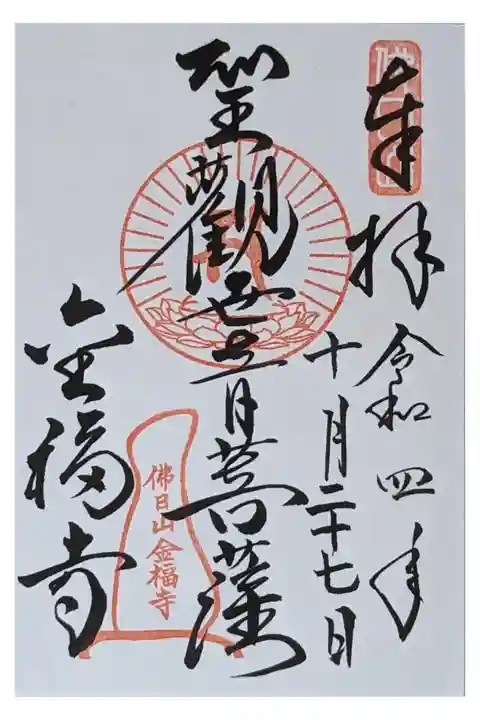 奉拝
令和四年
十月二十七日
聖觀世音菩薩
金福寺
佛日山金福寺